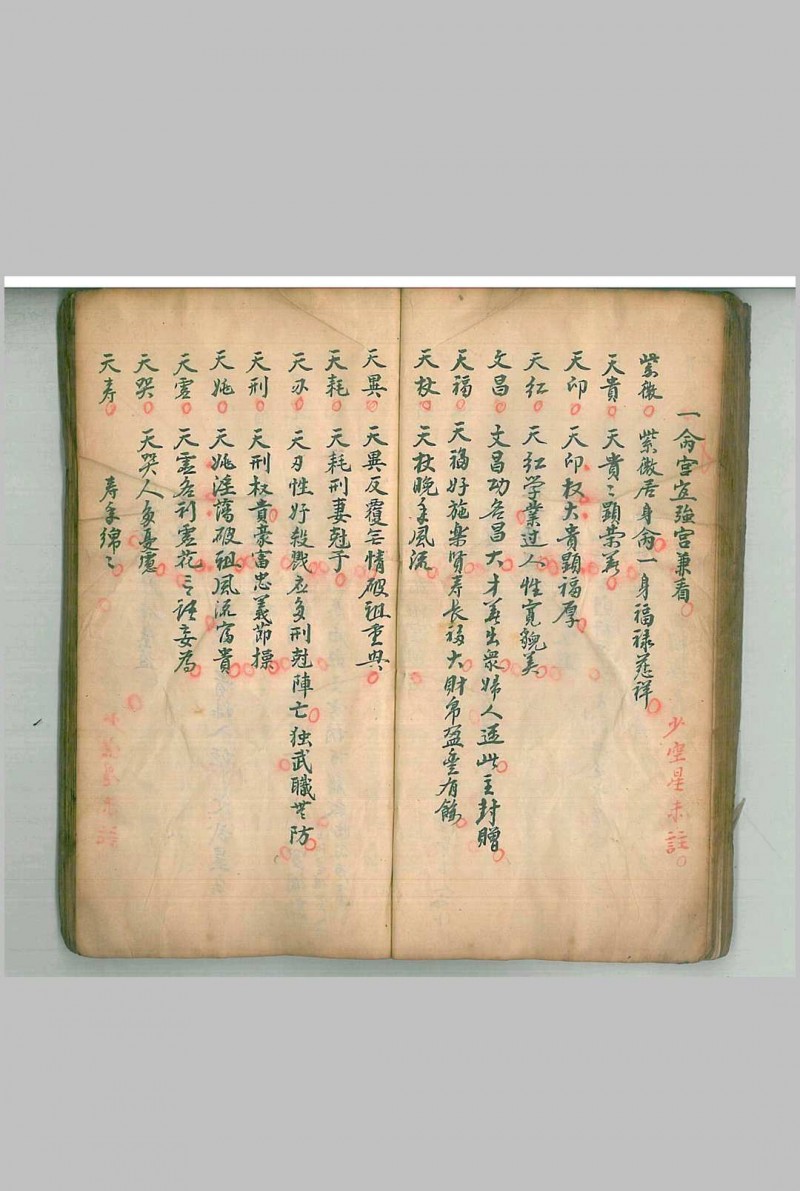 一命宮宜強宮兼看
少空星未註
紫微 紫微居身命一身福禄慈祥
天貴 天貴〻顕荣華
天印 天印权大貴顕福厚
天红 天红学業过人性寛貌美
文昌 文昌功名昌大才華出衆婦人逢此主封贈
天福 天福好施樂賢寿長福大財帛盈豊有餘
天杖 天杖晚年風流
天異 天異反覆无情破祖重興
天耗 天耗刑妻尅子
天刃 天刃性好殺戮応多刑尅陣亡独武職無防
天刑 天刑权貴豪富忠義節操
天姚 天姚淫蕩破祖風流富貴
天虚 天虚名利虚花言語妄為
天哭 天哭人多憂慮
天寿 寿年綿〻